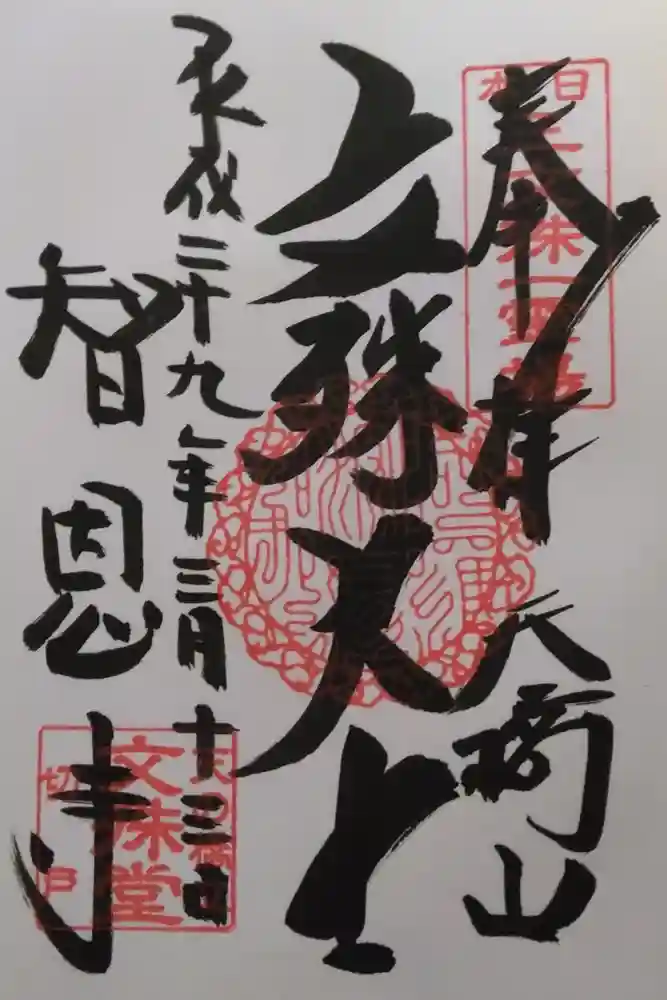 奉拝 天橋山
日本三文殊一霊場
文殊大士
平成二十九年三月十三日
智恩寺
文殊堂
切戸